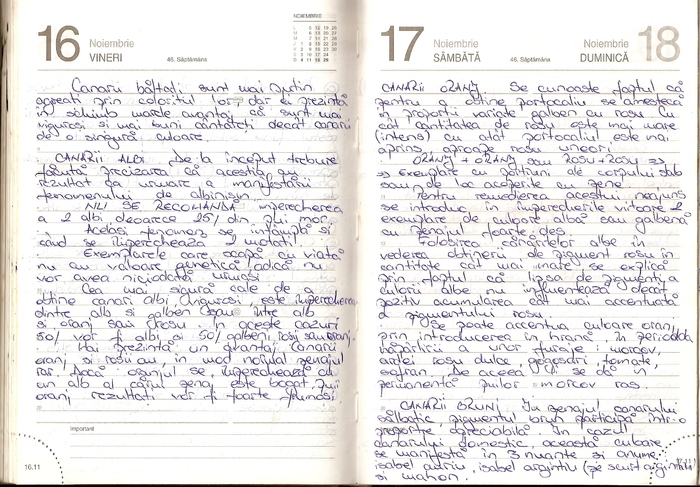 16 Noiembrie
VINERI
46. Săptămâna
NOIEMBRIE
Canarii bălţaţi sunt mai puţin
apreciaţi prin coloritul lor, dar ei prezintă
în schimb marele avantaj că sunt mai
viguroşi şi mai buni cântăreţi decât canarii
de o singură culoare.
CANARII ALBI De la început trebuie
făcută precizarea că aceştia au
rezultat ca urmare a manifestării
fenomenului de albinism.
NU SE RECOMANDĂ împerecherea
a 2 albi deoarece 25% din pui mor.
Acelaşi fenomen se întâmplă şi
când se împerechează 2 moţaţi.
Exemplarele care scapă cu viaţă
nu au valoare genetică adică nu
vor avea niciodată urmaşi.
Cea mai sigură cale de
obţine canari albi, viguroşi, este împerecherea
dintre alb şi galben sau între alb
şi oranj sau roşu. În aceste cazuri
50% vor fi albi şi 50% galbeni, roşii sau oranj.
Mai prezintă un avantaj canarii
oranj şi roşu au, în mod normal penajul
rar. Dacă oranjul se împerechează cu
un alb al cărui penaj este bogat, puii
oranj rezultaţi vor fi foarte frumoşi
Important
16.11
17 Noiembrie
SÂMBĂTĂ
46. Săptămâna
Noiembrie 18
DUMINICĂ
CANARII ORANJ Se cunoaşte faptul că
pentru a obţine portocaliu se amestecă
în proporţii variate galben cu roşu. Cu
cât cantitatea de roşu este mai mare
(intens) cu atât portocaliul este mai
aprins, aproape roşu uneori.
ORANJ + ORANJ sau ROŞU + ROŞU =>
=> exemplare cu porţiuni ale corpului slab
sau de loc acoperite cu pene.
Pentru remedierea acestui neajuns
se introduc în împerecherile viitoare 2
exemplare de culoare albă sau galbenă
cu penajul foarte des.
Folosirea canarilor albe în
vederea obţinerii de pigment roşu în
cantitate cât mai mare se explică
prin faptul că lipsa de pigmenţi a
culorii albe nu influenţează decât
pozitiv acumularea cât mai accentuată
a pigmentului roşu.
Se poate accentua culoare oranj
prin introducerea în hrană în perioada
năpârlirii a unor furaje: morcov,
ardei roşu dulce, gogoşari, tomate,
şofran. De aceea şi se dă în
permanenţă puilor morcov ras.
CANARII BRUNI În penajul canarului
sălbatic, pigmentul brun participă într-o
proporţie apreciabilă. În cazul
canarului domestic, această culoare
se manifestă în 3 nuanţe şi anume:
isabel auriu, isabel argintiu (pe scurt argintiu)
şi mahon.
17.11